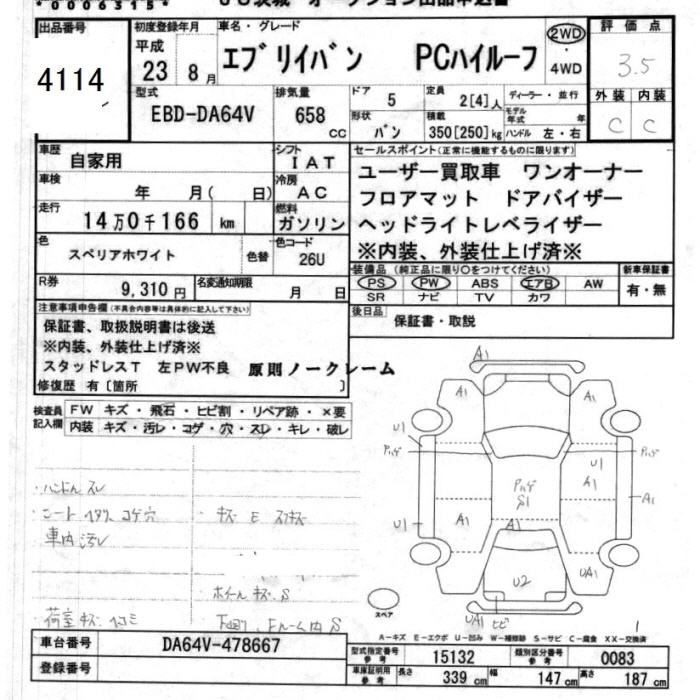 *00063151*
オークション出品申込書
出品番号 4114
初度登録年月 平成 23 8月
車名・グレード エブリイバン PCハイルーフ
2WD・4WD
評価点 3.5
型式 EBD-DA64V
排気量 658 CC
ドア 5
定員 2[4]人
ディーラー・並行
モデル年式 年
形状 バン
積載 350[250]kg
ハンドル 左・右
外装 C
内装 C
車歴 自家用
シフト IAT
セールスポイント(正常に機能するものに限ります)
車検 年 月( 日)
冷房 AC
ユーザー買取車 ワンオーナー
フロアマット ドアバイザー
ヘッドライトレベライザー
※内装、外装仕上げ済※
走行 14万0千166 km
燃料 ガソリン
色 スペリアホワイト
色替
色コード 26U
装備品(純正品に限り○をつけてください)
PS PW ABS エアB AW
SR ナビ TV カワ
新車保証書 有・無
R券 9,310円
名変通知期限 月 日
後日品 保証書・取説
注意事項申告欄(不具合内容等は具体的に記入して下さい)
保証書、取扱説明書は後送
※内装、外装仕上げ済※
スタッドレスT 左PW不良 原則ノークレーム
修復歴 有〔箇所 〕
検査員記入欄
FW キズ・飛石・ヒビ割・リペア跡・×要
内装 キズ・汚レ・コゲ・穴・スレ・キレ・破レ
・ハンドルスレ
・シートヘタリ コゲ穴
車内汚レ
・キズ E
・ホイールキズ、S
荷室キズ・凹コミ
下回り、Fルーム内 S
A1
A1
A1
U1
U1
A1
A1
A1
U1
S1
A1
U2
UA1
UA1
ヒビ
スペア
1
A-キズ E-エクボ U-凹み W-補修跡 S-サビ C-腐食 XX-交換済
車台番号 DA64V-478667
登録番号
型式指定番号 参考 15132
類別区分番号 参考 0083
車庫証明用 参考 長さ 339 cm 幅 147 cm 高さ 187 cm